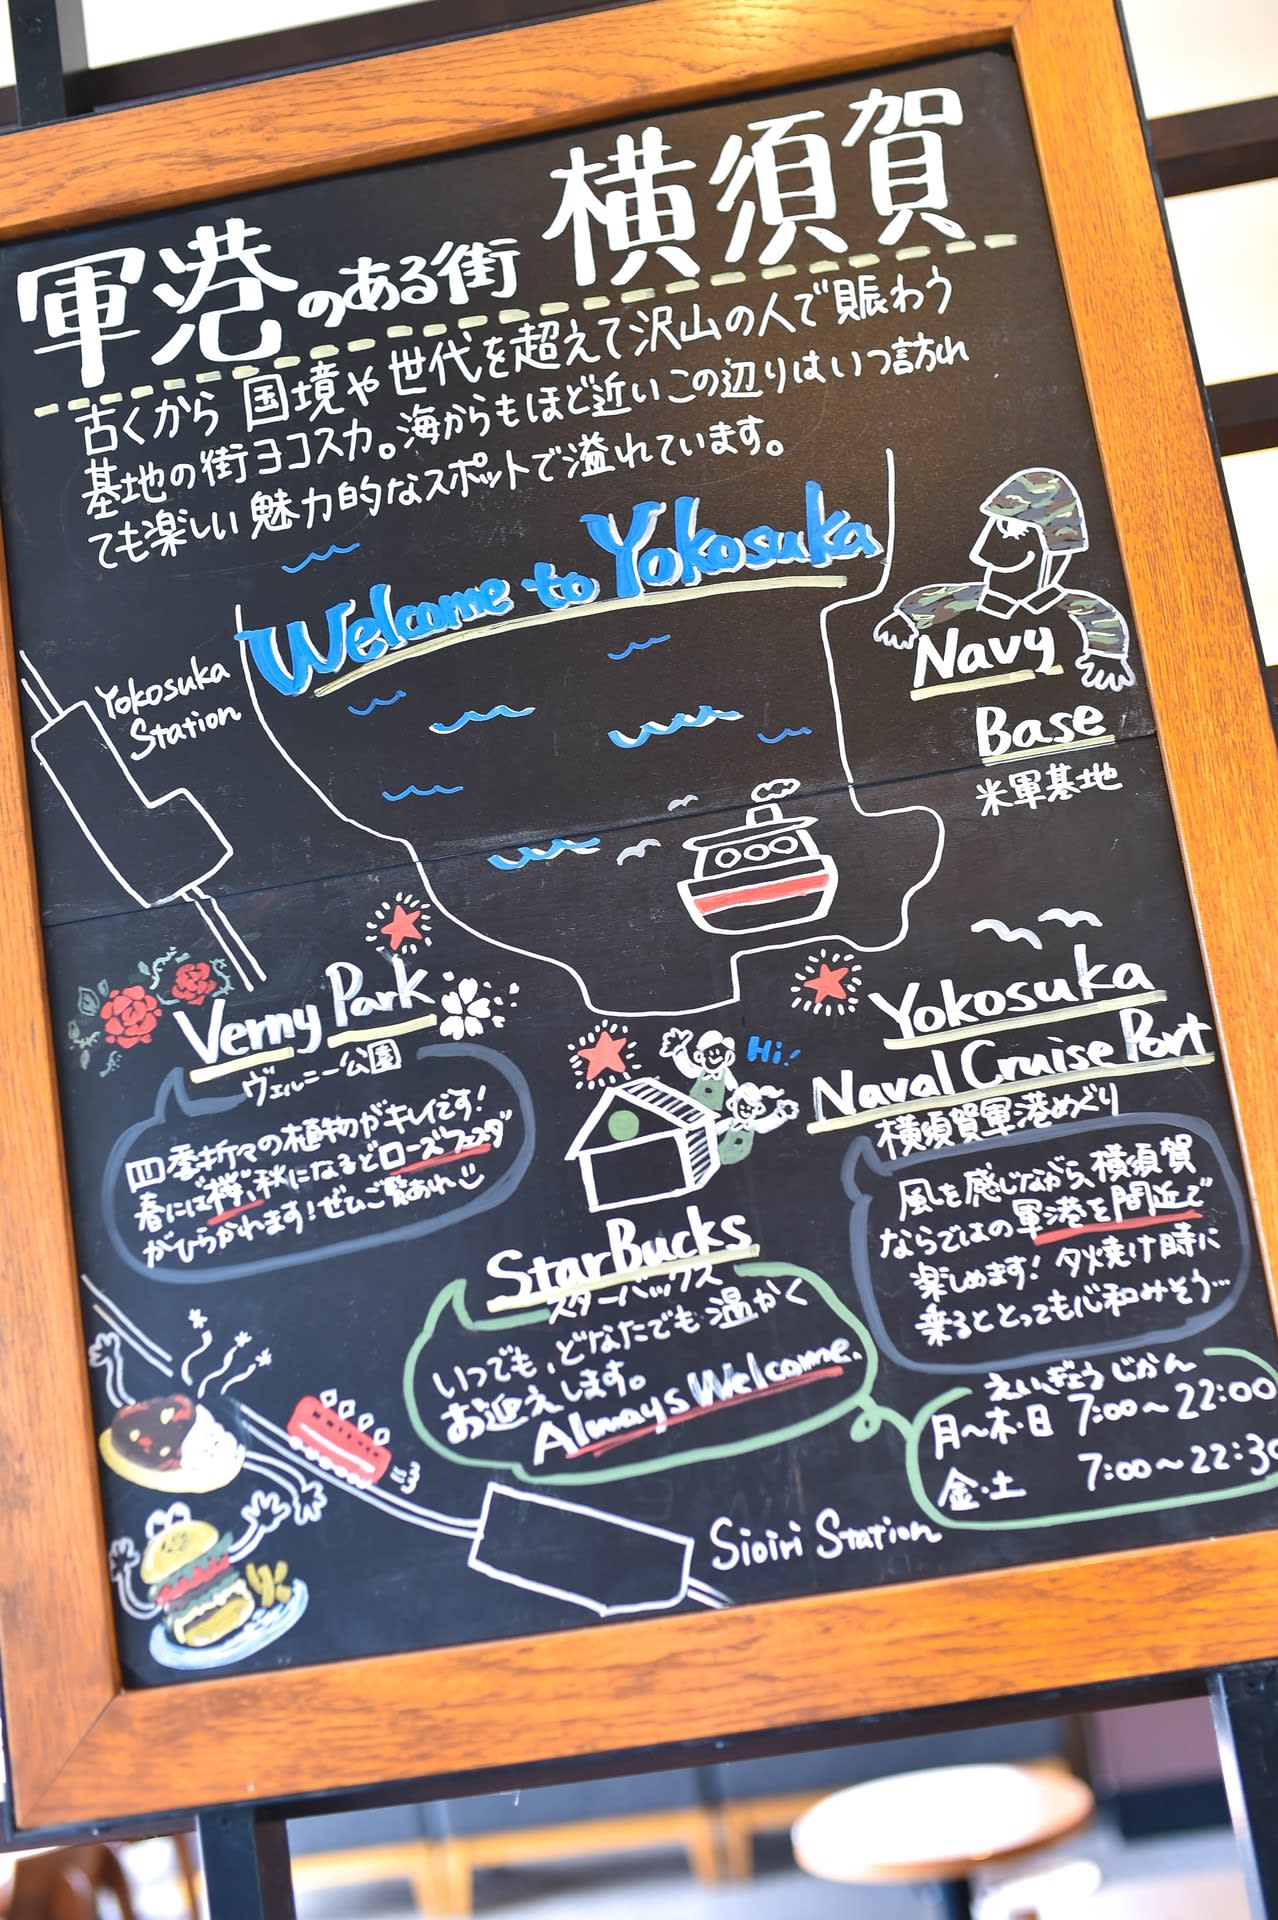 軍港のある街 横須賀
古くから 国境や世代を超えて沢山の人で賑わう
基地の街ヨコスカ。海からもほど近いこの辺りはいつ訪れ
ても楽しい魅力的なスポットで溢れています。
Welcome to Yokosuka
Navy
Base
米軍基地
Yokosuka
Station
Verny Park
ヴェルニー公園
四季折々の植物がキレイです!
春には桜、秋になるとローズフェスタ
がひらかれます!ぜひご覧あれ
Hi!
Yokosuka
Naval Cruise Port
横須賀軍港めぐり
風を感じながら、横須賀
ならではの軍港を間近で
楽しめます! 夕焼け時に
乗るととっても心和みそう…
StarBucks
スターバックス
いつでも、どなたでも温かく
お迎えします。
Always Welcome.
えいぎょうじかん
月〜木・日 7:00〜22:00
金・土 7:00〜22:30
Sioiri Station